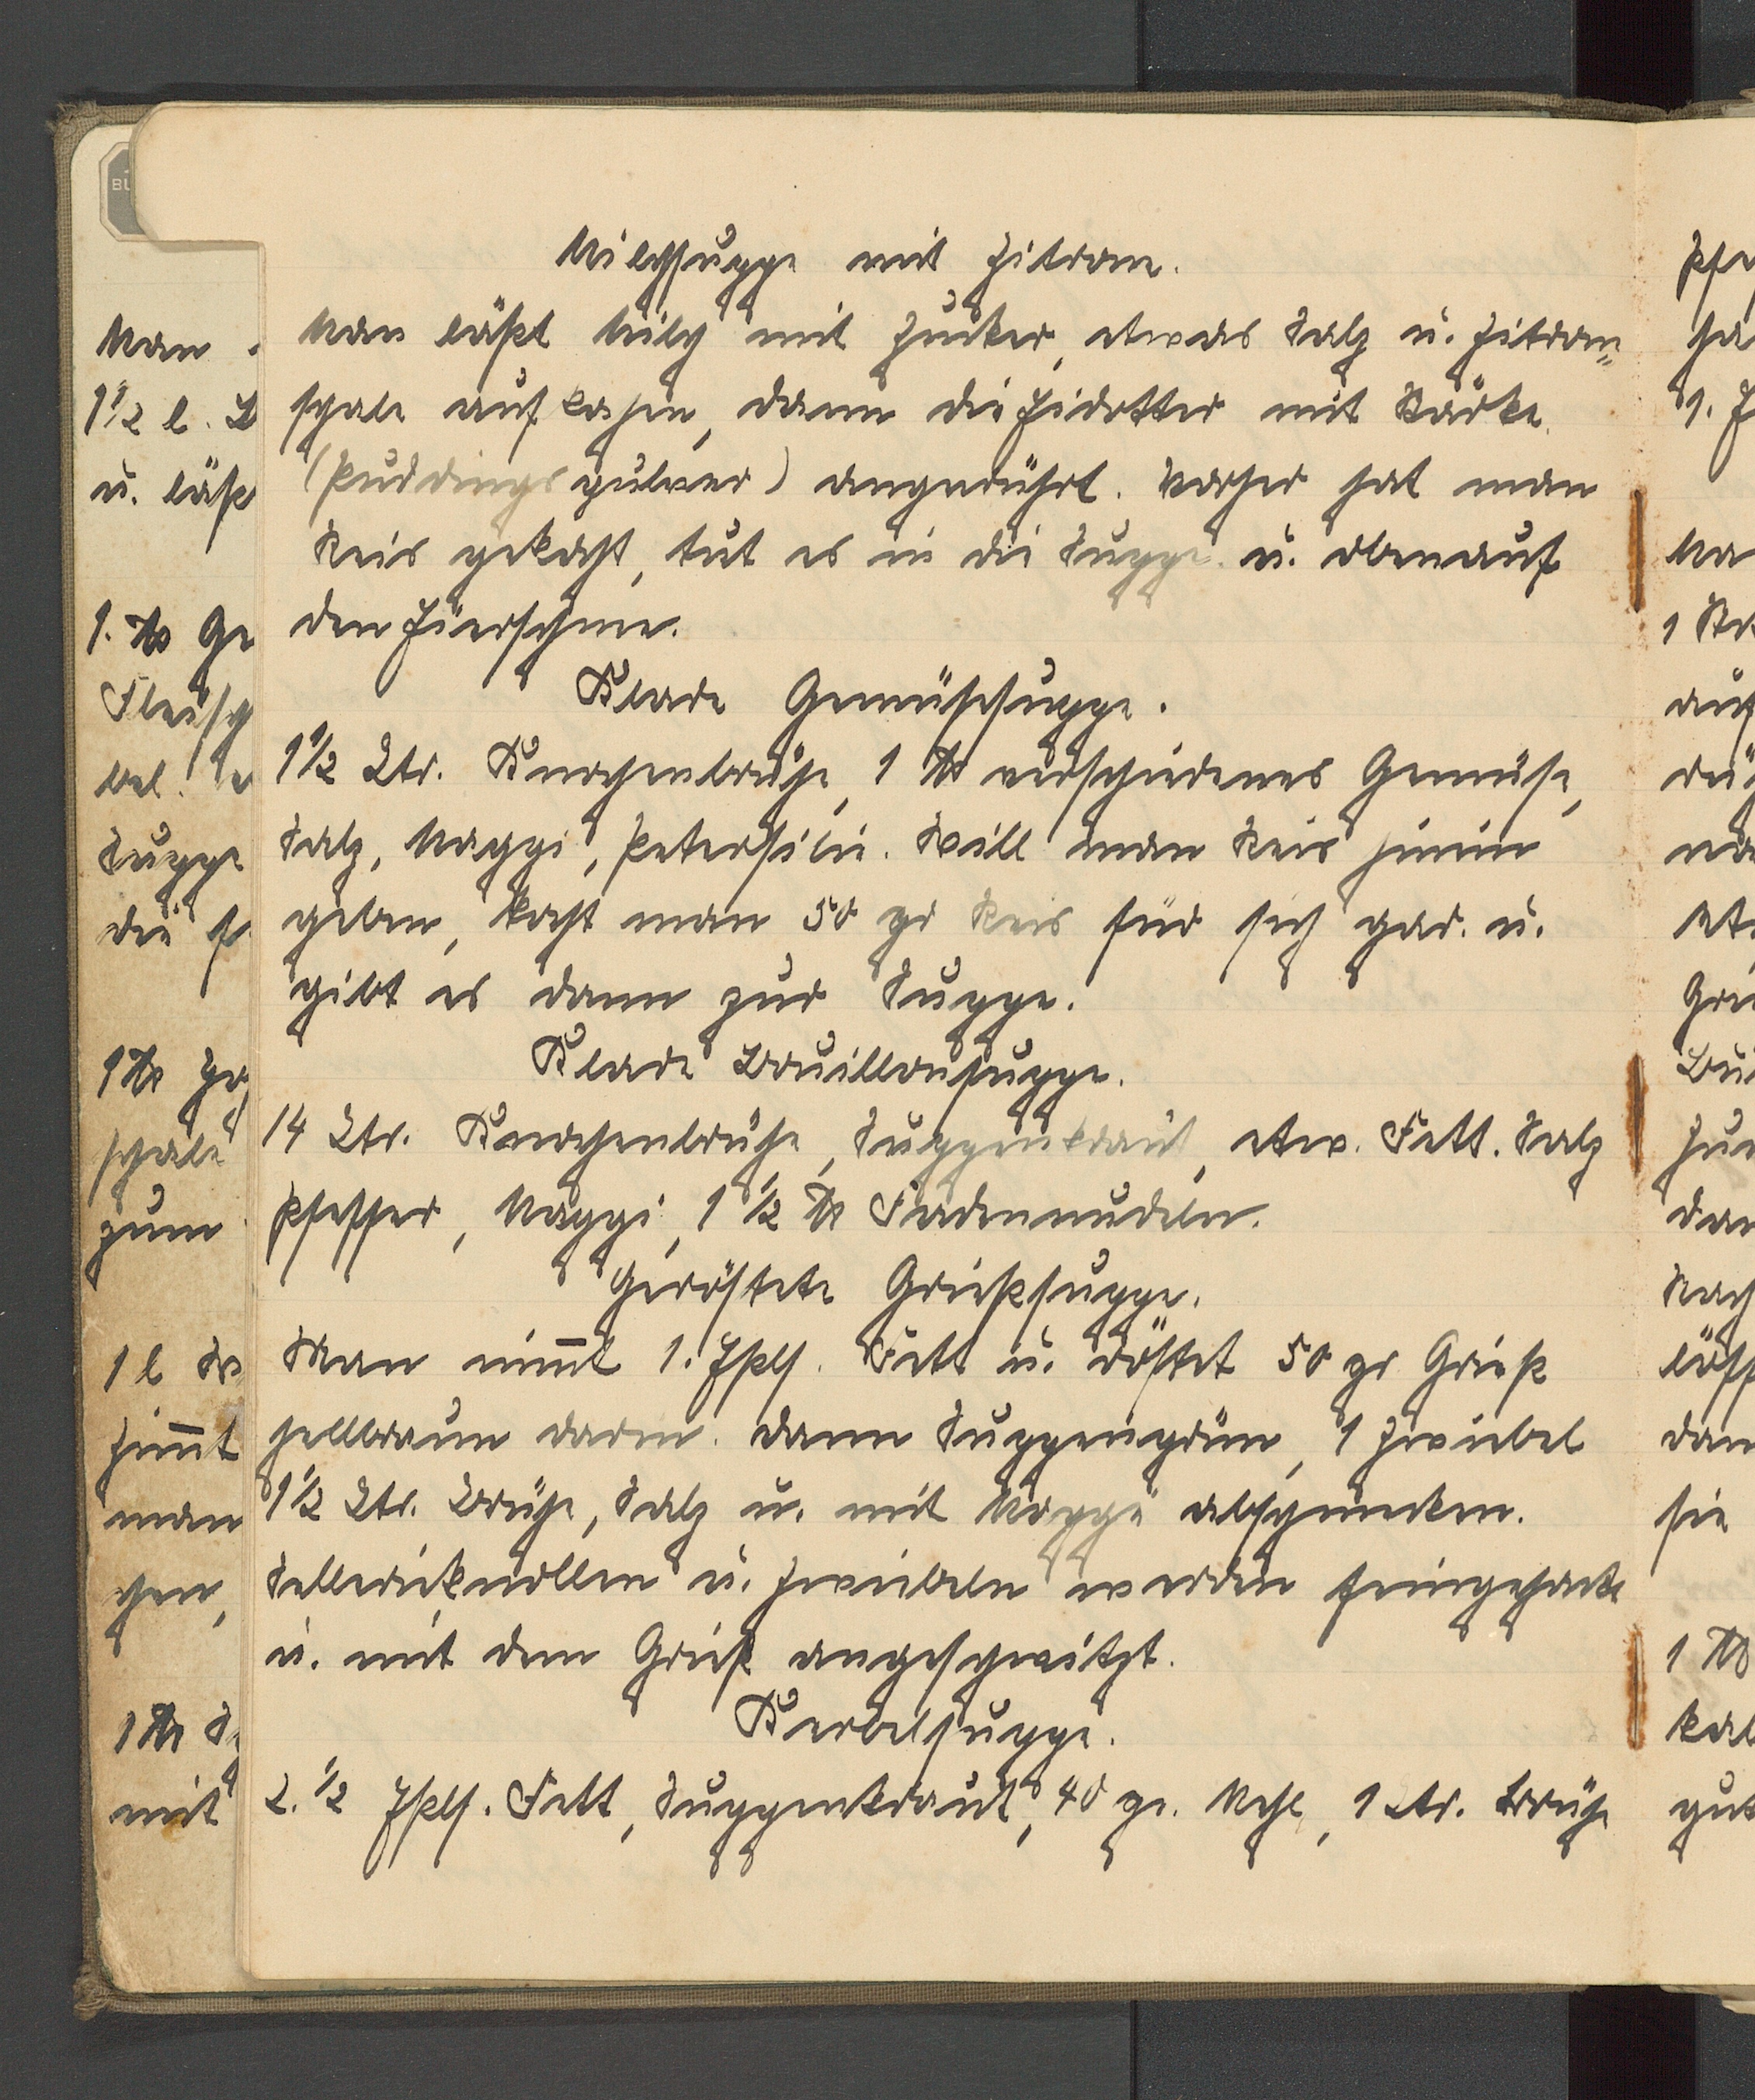 Milchsuppe mit Zitrone.
Man läßt Milch mit Zucker, etwas Salz u. Zitron„
schale aufkochen, dann die Eidotter mit Stärke
(Puddingspulver) angerührt. Vorher hat man
Reis gekocht, tut es in die Suppe u. obenauf
den Eierschnee.
Klare Gemüsesuppe.
1½ Ltr. Knochenbrühe, 1 ℔ verschiedenes Gemüse,
Salz, Maggi, Petersilie. Will man Reis hinein
geben, kocht man 50 gr Reis für sich gar. u.
gibt es dann zur Suppe.
Klare Bouillonsuppe.
14 Ltr. Knochenbrühe, Suppenkraut, etw. Fett. Salz
Pfeffer, Maggi, 1 ½ ℔ Fadennudeln.
Geröstete Grießsuppe.
Man nim̅t 1. Eßlf. Fett u. röstet 50 gr Grieß
hellbraun darin. Dann Suppengrün, 1 Zwiebel
1½ Ltr. Brühe, Salz u. mit Maggi abschmecken.
Sellerieknollen u. Zwiebeln werden feingehackt
u. mit dem Grieß angeschwitzt.
Kerbelsuppe.
2.½ Eßlf. Fett, Suppenkraut, 40 gr. Mehl, 1 Ltr. Brühe
Man
1½ l. B
u. läß
1. ℔ Ge
Fleisch
Suppe
die
1 ℔
schale
zum
1 l
Zim̅t
man
gen,
1 ℔ S
mit
Pfe
1. E
Ma
auf
Grie
dan
Nach
löff
dan
sie
1 ℔
gut